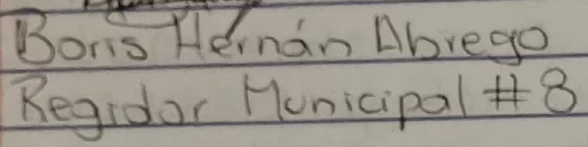 Boris Hernán Abrego
Regidor Municipal #8